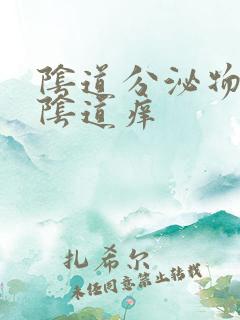 陰道分泌物
陰道痒
扎希尔
未经同意禁止转载